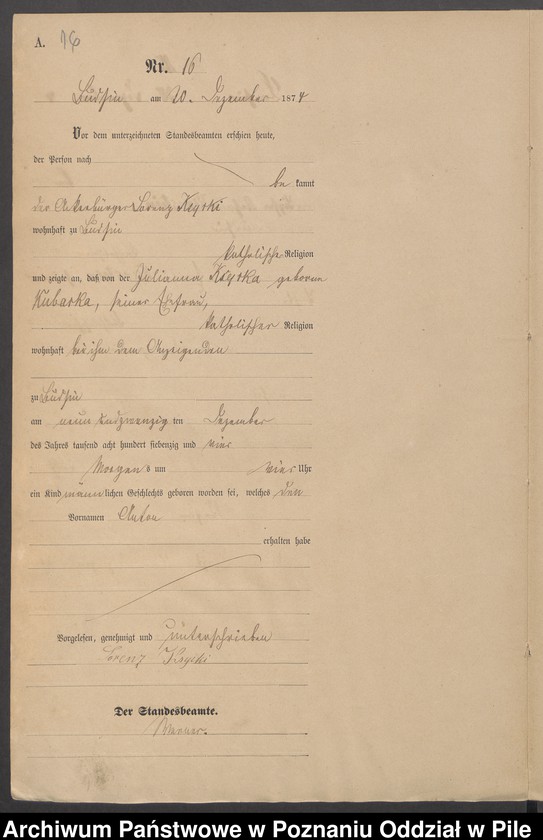 A. 16
Nr. 16
am 30. Dezember 1874
Vor dem unterzeichneten Standesbeamten erschien heute,
der Person nach
be kannt
der Ackerbürger Lorenz
wohnhaft zu
katholischer Religion
und zeigte an, daß von der Julianna geborene
Kubacka, seiner Ehefrau,
katholischer Religion
wohnhaft bei ihm dem Anzeigenden
zu
am neun und zwanzig ten Dezember
des Jahres tausend acht hundert siebenzig und vier
Morgens um vier Uhr
ein Kind männlichen Geschlechts geboren worden sei, welches den
Vornamen Anton
erhalten habe
Vorgelesen, genehmigt und unterschrieben
Lorenz
Der Standesbeamte.
Archiwum Państwowe w Poznaniu Oddział w Pile